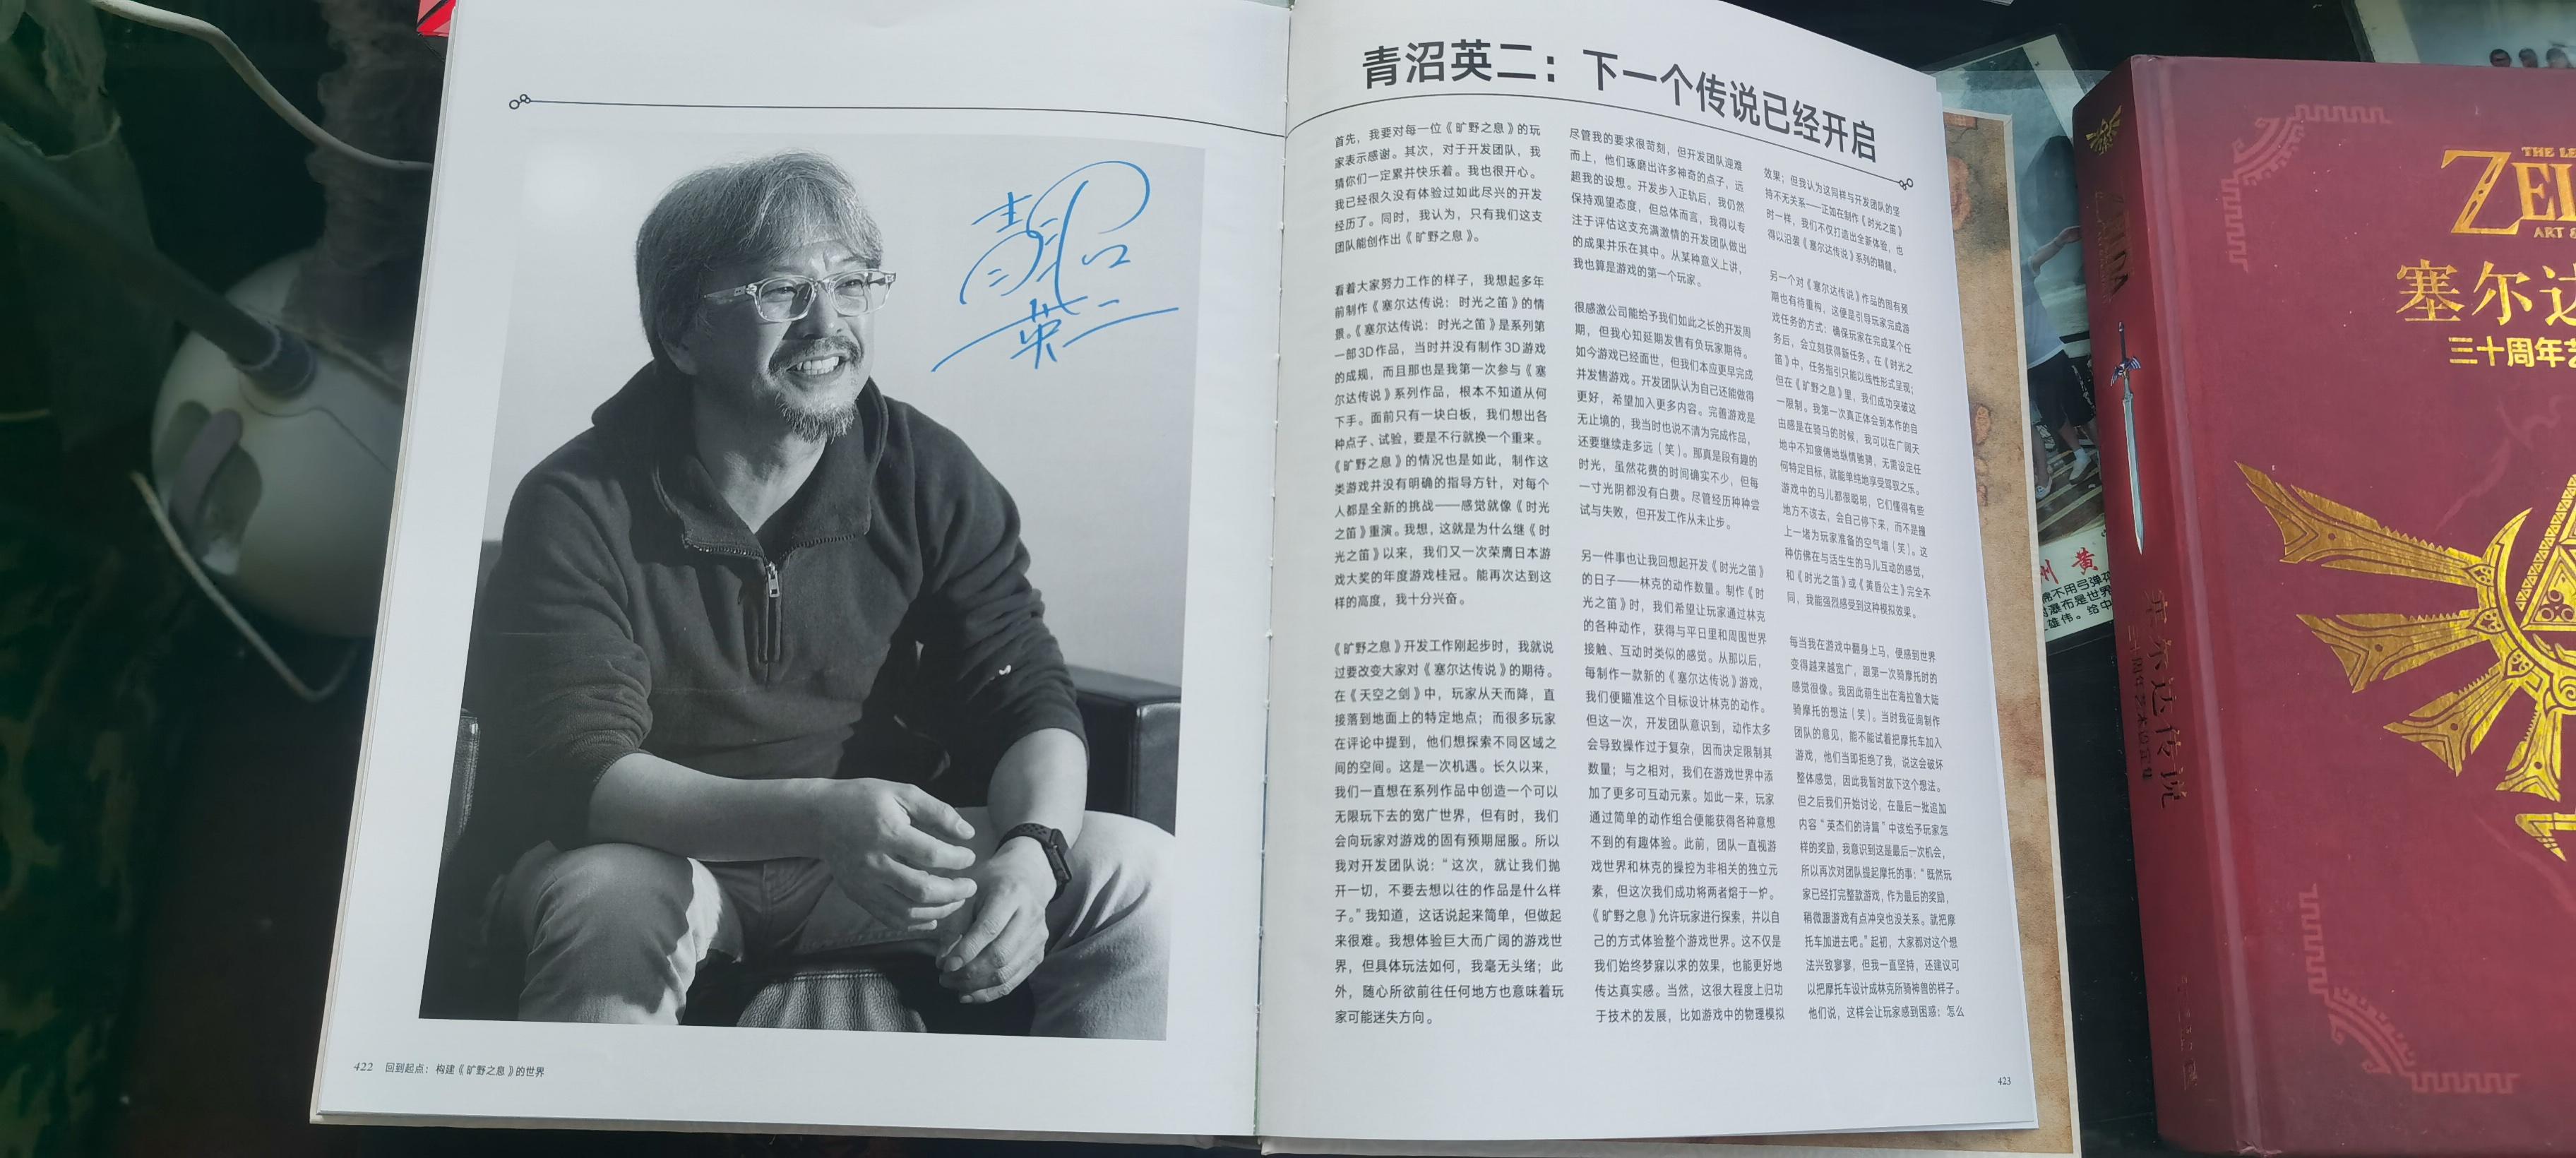 青沼英二
422 回到起点：构建《旷野之息》的世界
青沼英二：下一个传说已经开启
首先，我要对每一位《旷野之息》的玩
家表示感谢。其次，对于开发团队，我
猜你们一定累并快乐着。我也很开心。
我已经很久没有体验过如此尽兴的开发
经历了。同时，我认为，只有我们这支
团队能创作出《旷野之息》。
看着大家努力工作的样子，我想起多年
前制作《塞尔达传说：时光之笛》的情
景。《塞尔达传说：时光之笛》是系列第
一部3D作品，当时并没有制作3D游戏
的成规，而且那也是我第一次参与《塞
尔达传说》系列作品，根本不知道从何
下手。面前只有一块白板，我们想出各
种点子、试验，要是不行就换一个重来。
《旷野之息》的情况也是如此，制作这
类游戏并没有明确的指导方针，对每个
人都是全新的挑战——感觉就像《时光
之笛》重演。我想，这就是为什么继《时
光之笛》以来，我们又一次荣膺日本游
戏大奖的年度游戏桂冠。能再次达到这
样的高度，我十分兴奋。
《旷野之息》开发工作刚起步时，我就说
过要改变大家对《塞尔达传说》的期待。
在《天空之剑》中，玩家从天而降，直
接落到地面上的特定地点；而很多玩家
在评论中提到，他们想探索不同区域之
间的空间。这是一次机遇。长久以来，
我们一直想在系列作品中创造一个可以
无限玩下去的宽广世界，但有时，我们
会向玩家对游戏的固有预期屈服。所以
我对开发团队说：“这次，就让我们抛
开一切，不要去想以往的作品是什么样
子。”我知道，这话说起来简单，但做起
来很难。我想体验巨大而广阔的游戏世
界，但具体玩法如何，我毫无头绪；此
外，随心所欲前往任何地方也意味着玩
家可能迷失方向。
尽管我的要求很苛刻，但开发团队迎难
而上，他们琢磨出许多神奇的点子，远
超我的设想。开发步入正轨后，我仍然
保持观望态度，但总体而言，我得以专
注于评估这支充满激情的开发团队做出
的成果并乐在其中。从某种意义上讲，
我也算是游戏的第一个玩家。
很感激公司能给予我们如此之长的开发周
期，但我心知延期发售有负玩家期待。
如今游戏已经面世，但我们本应更早完成
并发售游戏。开发团队认为自己还能做得
更好，希望加入更多内容。完善游戏是
无止境的，我当时也说不清为完成作品，
还要继续走多远（笑）。那真是段有趣的
时光，虽然花费的时间确实不少，但每
一寸光阴都没有白费。尽管经历种种尝
试与失败，但开发工作从未止步。
另一件事也让我回想起开发《时光之笛》
的日子——林克的动作数量。制作《时
光之笛》时，我们希望让玩家通过林克
的各种动作，获得与平日里和周围世界
接触、互动时类似的感觉。从那以后，
每制作一款新的《塞尔达传说》游戏，
我们便瞄准这个目标设计林克的动作。
但这一次，开发团队意识到，动作太多
会导致操作过于复杂，因而决定限制其
数量；与之相对，我们在游戏世界中添
加了更多可互动元素。如此一来，玩家
通过简单的动作组合便能获得各种意想
不到的有趣体验。此前，团队一直视游
戏世界和林克的操控为非相关的独立元
素，但这次我们成功将两者熔于一炉。
《旷野之息》允许玩家进行探索，并以自
己的方式体验整个游戏世界。这不仅是
我们始终梦寐以求的效果，也能更好地
传达真实感。当然，这很大程度上归功
于技术的发展，比如游戏中的物理模拟
效果；但我认为这同样与开发团队的坚
持不无关系——正如在制作《时光之笛》
时一样，我们不仅打造出全新体验，也
得以沿袭《塞尔达传说》系列的精髓。
另一个对《塞尔达传说》作品的固有预
期也有待重构，这便是引导玩家完成游
戏任务的方式：确保玩家在完成某个任
务后，会立刻获得新任务。在《时光之
笛》中，任务指引只能以线性形式呈现；
但在《旷野之息》里，我们成功突破这
一限制。我第一次真正体会到本作的自
由感是在骑马的时候，我可以在广阔天
地中不知疲倦地纵情驰骋，无需设定任
何特定目标，就能单纯地享受驾驭之乐。
游戏中的马儿都很聪明，它们懂得有些
地方不该去，会自己停下来，而不是撞
上一堵为玩家准备的空气墙（笑）。这
种仿佛在与活生生的马儿互动的感觉，
和《时光之笛》或《黄昏公主》完全不
同，我能强烈感受到这种模拟效果。
每当我在游戏中翻身上马，便感到世界
变得越来越宽广，跟第一次骑摩托时的
感觉很像。我因此萌生出在海拉鲁大陆
骑摩托的想法（笑）。当时我征询制作
团队的意见，能不能试着把摩托车加入
游戏，他们当即拒绝了我，说这会破坏
整体感觉，因此我暂时放下这个想法。
但之后我们开始讨论，在最后一批追加
内容“英杰们的诗篇”中该给予玩家怎
样的奖励，我意识到这是最后一次机会，
所以再次对团队提起摩托的事：“既然玩
家已经打完整款游戏，作为最后的奖励，
稍微跟游戏有点冲突也没关系。就把摩
托车加进去吧。”起初，大家都对这个想
法兴致寥寥，但我一直坚持，还建议可
以把摩托车设计成林克所骑神兽的样子。
他们说，这样会让玩家感到困惑：怎么
423
州 黄
瀑布是世界
雄伟。给中
ZELDA
塞尔达传说
THE LE
ZEL
ART &
塞尔达
三十周年艺